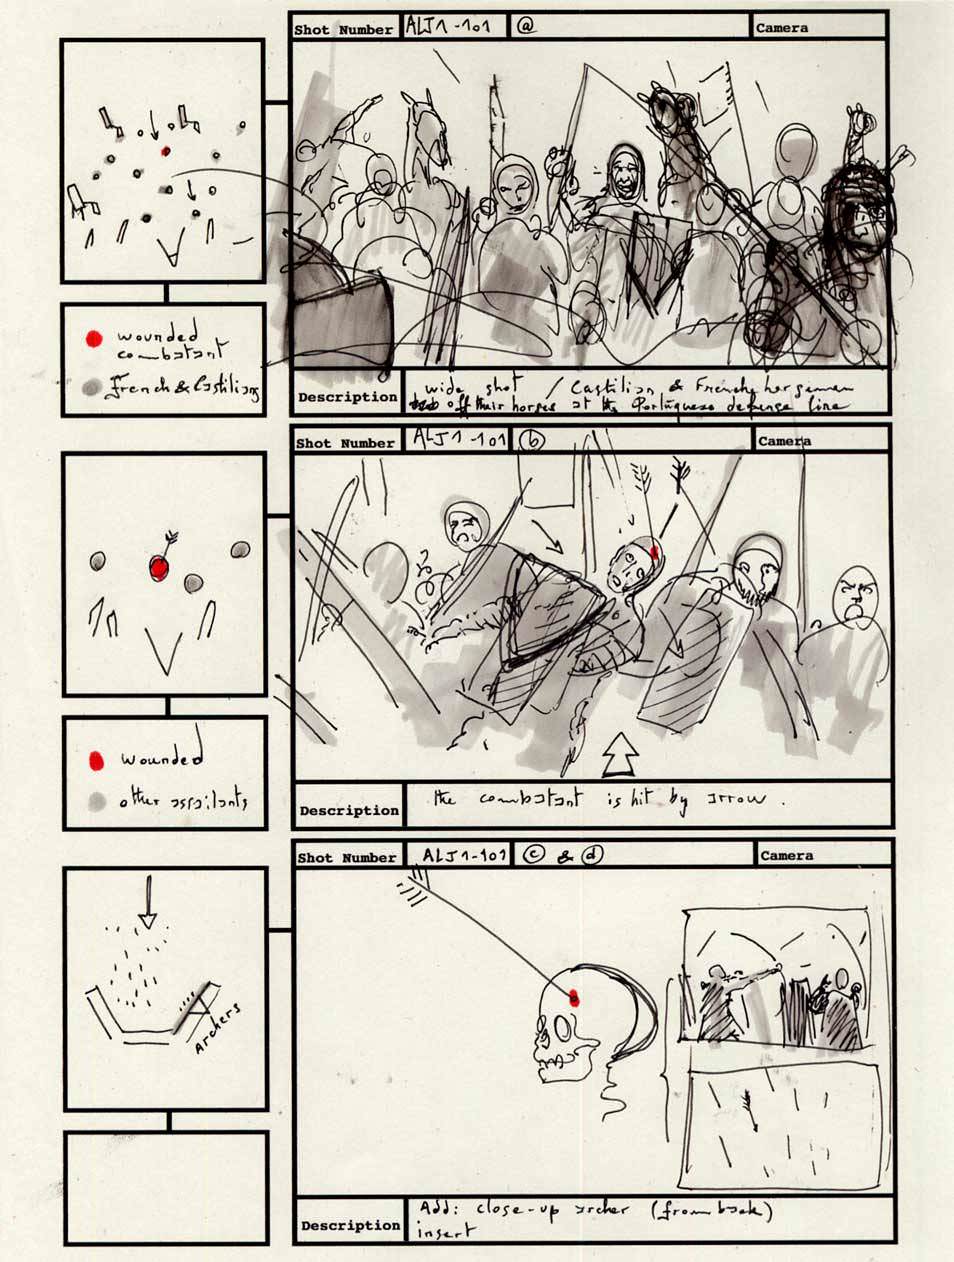 Shot Number ALJ1-101 a Camera
wounded
combatant
French & Castilians
Description
wide shot / Castilian & Frenche horsemen
off their horses at the Portuguese defense line
Shot Number ALJ1-101 b Camera
wounded
other assailants
Description
the combatant is hit by arrow.
Shot Number ALJ1-101 c & d Camera
Archers
Description
Add: close-up archer (from back)
insert